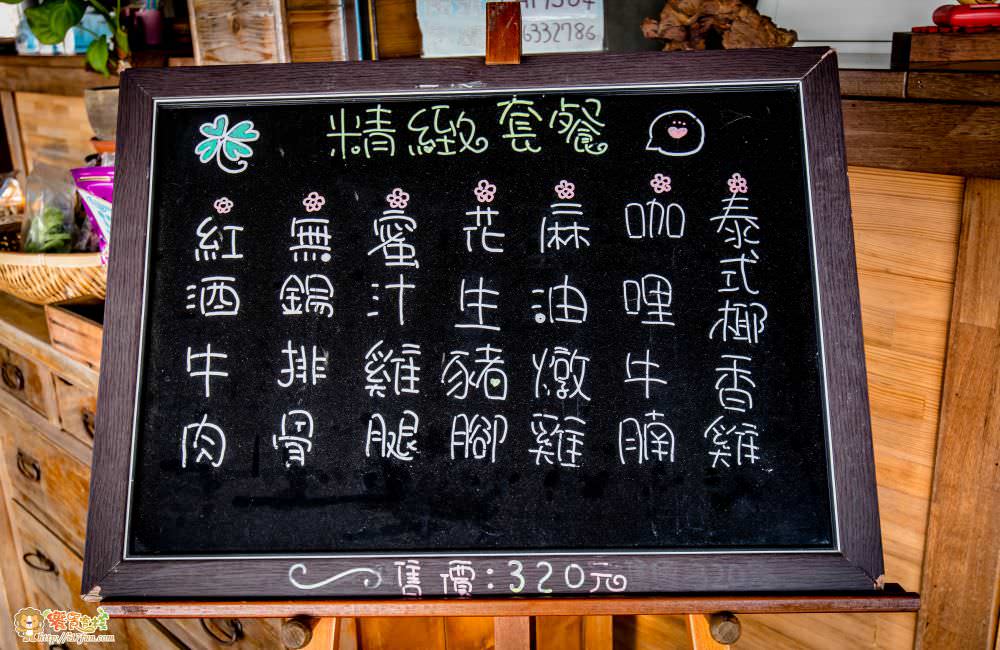 精緻套餐
泰式椰香雞
咖哩牛腩
麻油燉雞
花生豬腳
蜜汁雞腿
無錫排骨
紅酒牛肉
售價:320元
6332786